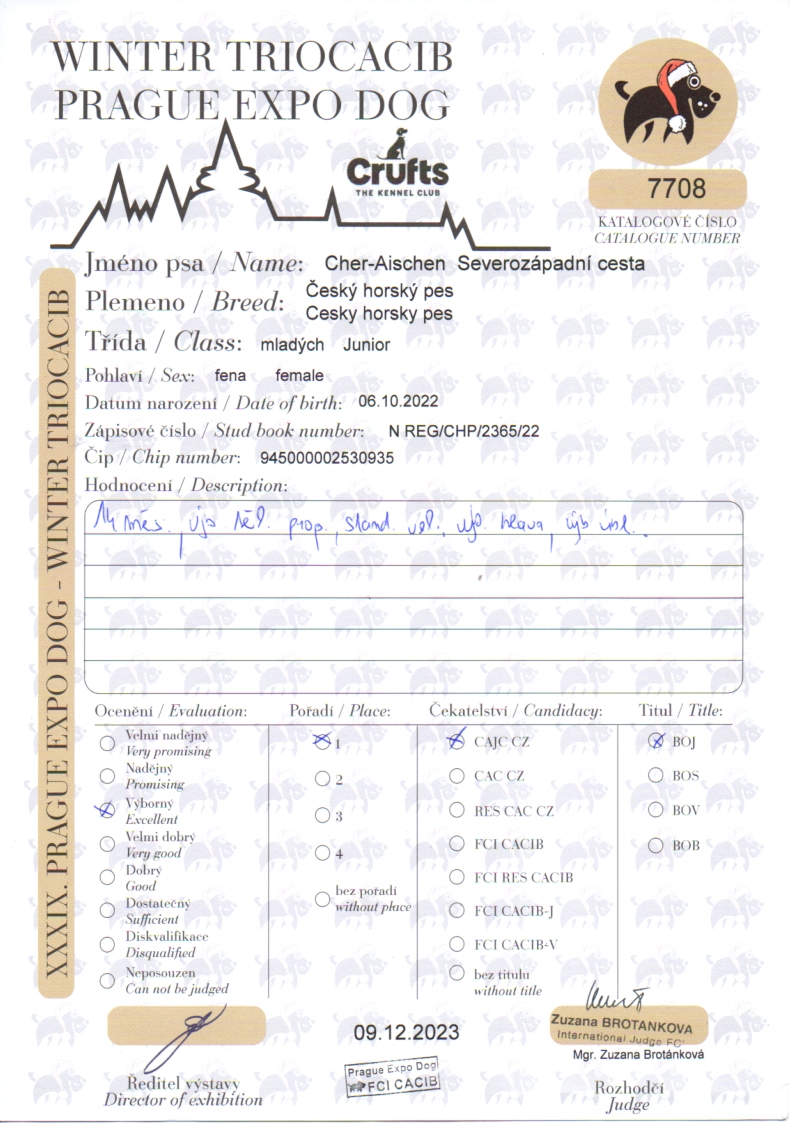 WINTER TRIOCACIB
PRAGUE EXPO DOG
Crufts
THE KENNEL CLUB
7708
KATALOGOVÉ ČÍSLO
CATALOGUE NUMBER
XXXIX. PRAGUE EXPO DOG - WINTER TRIOCACIB
Jméno psa / Name: Cher-Aischen Severozápadní cesta
Plemeno / Breed: Český horský pes
Cesky horsky pes
Třída / Class: mladých Junior
Pohlaví / Sex: fena female
Datum narození / Date of birth: 06.10.2022
Zápisové číslo / Stud book number: N REG/CHP/2365/22
Čip / Chip number: 945000002530935
Hodnocení / Description:
14 měs., výb těl. prop., stand. vel., výb. hlava, výb
Ocenění / Evaluation:
Velmi nadějný
Very promising
Nadějný
Promising
Výborný
Excellent
Velmi dobrý
Very good
Dobrý
Good
Dostatečný
Sufficient
Diskvalifikace
Disqualified
Neposouzen
Can not be judged
Pořadí / Place:
1
2
3
4
bez pořadí
without place
Čekatelství / Candidacy:
CAJC CZ
CAC CZ
RES CAC CZ
FCI CACIB
FCI RES CACIB
FCI CACIB-J
FCI CACIB-V
bez titulu
without title
Titul / Title:
BOJ
BOS
BOV
BOB
Ředitel výstavy
Director of exhibition
09.12.2023
Prague Expo Dog
FCI CACIB
Zuzana BROTANKOVA
International Judge FCI
Mgr. Zuzana Brotánková
Rozhodčí
Judge